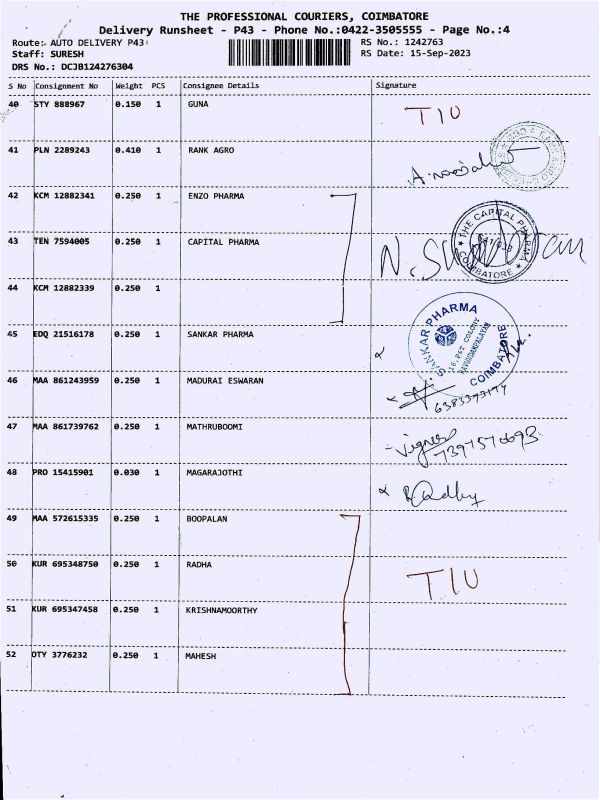 THE PROFESSIONAL COURIERS, COIMBATORE
Delivery Runsheet - P43 - Phone No.:0422-3505555 - Page No.:4
Route: AUTO DELIVERY P43 RS No.: 1242763
Staff: SURESH RS Date: 15-Sep-2023
DRS No.: DCJB124276304
S No Consignment No Weight PCS Consignee Details Signature
40 STY 888967 0.150 1 GUNA TIU
41 PLN 2289243 0.410 1 RANK AGRO
42 KCM 12882341 0.250 1 ENZO PHARMA
43 TEN 7594005 0.250 1 CAPITAL PHARMA
THE CAPITAL PHARMA
COIMBATORE
44 KCM 12882339 0.250 1
45 EDQ 21516178 0.250 1 SANKAR PHARMA
SANKAR PHARMA
COIMBATORE
46 MAA 861243959 0.250 1 MADURAI ESWARAN
47 MAA 861739762 0.250 1 MATHRUBOOMI
48 PRO 15415901 0.030 1 MAGARAJOTHI
49 MAA 572615335 0.250 1 BOOPALAN
50 KUR 695348750 0.250 1 RADHA TIU
51 KUR 695347458 0.250 1 KRISHNAMOORTHY
52 OTY 3776232 0.250 1 MAHESH